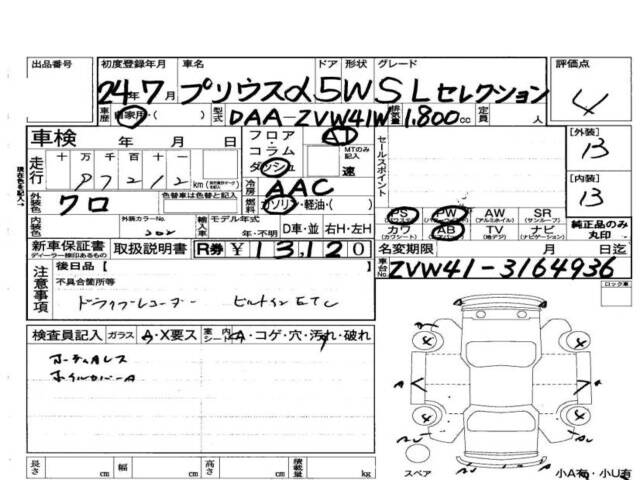 出品番号 初度登録年月 車名 ドア 形状 グレード 評価点
24年7月 プリウスα 5 W SLセレクション 4
車歴 自家用・( ) 型式 DAA-ZVW41W 排気量 1.800cc 定員 人
車検 年 月 日 フロア・コラム・ダッシュ AT MTのみ記入 速 セールスポイント [外装] B
走行 十 万 千 百 十 一 km
現在色を記入→
冷房 AAC [内装] B
外装色 クロ 色替車は色替と記入 燃料 ガソリン・軽油・( )
PS (パワステ) PW AW (アルミホイル) SR (サンルーフ) 純正品のみ丸印
内装色 外装カラーNo. 202 輸入車 モデル年式 年・不明 D車・並 右H・左H
カワ (カワシート) AB TV (地デジ) ナビ (ナビゲーション)
新車保証書 ディーラー捺印あるもの 取扱説明書 R券 ¥13,120 名変期限 月 日迄
注意事項 後日品 [ ] 車台No. ZVW41-3164936
不具合箇所等 ロック車
ドライブレコーダー ビルトインETC
検査員記入 ガラス A・X要ス 車内シート A・コゲ・穴・汚れ・破れ
ホイルカバーA
4 4
A A
4 4
スペア
長さ cm 幅 cm 高さ cm 積載量 kg 小A有・小U有